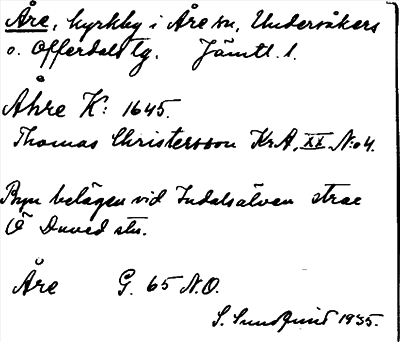 Åre, kyrkby i Åre sn, Undersåkers
o. Offerdals tg. Jämtl. l.
Åhre K: 1645.
Thomas Christersson KrA, XX. No 4.
Byn belägen vid Indalsälven strax
Ö Duved stn.
Åre G. 65 N.O.
S. Sundqvist 1935.